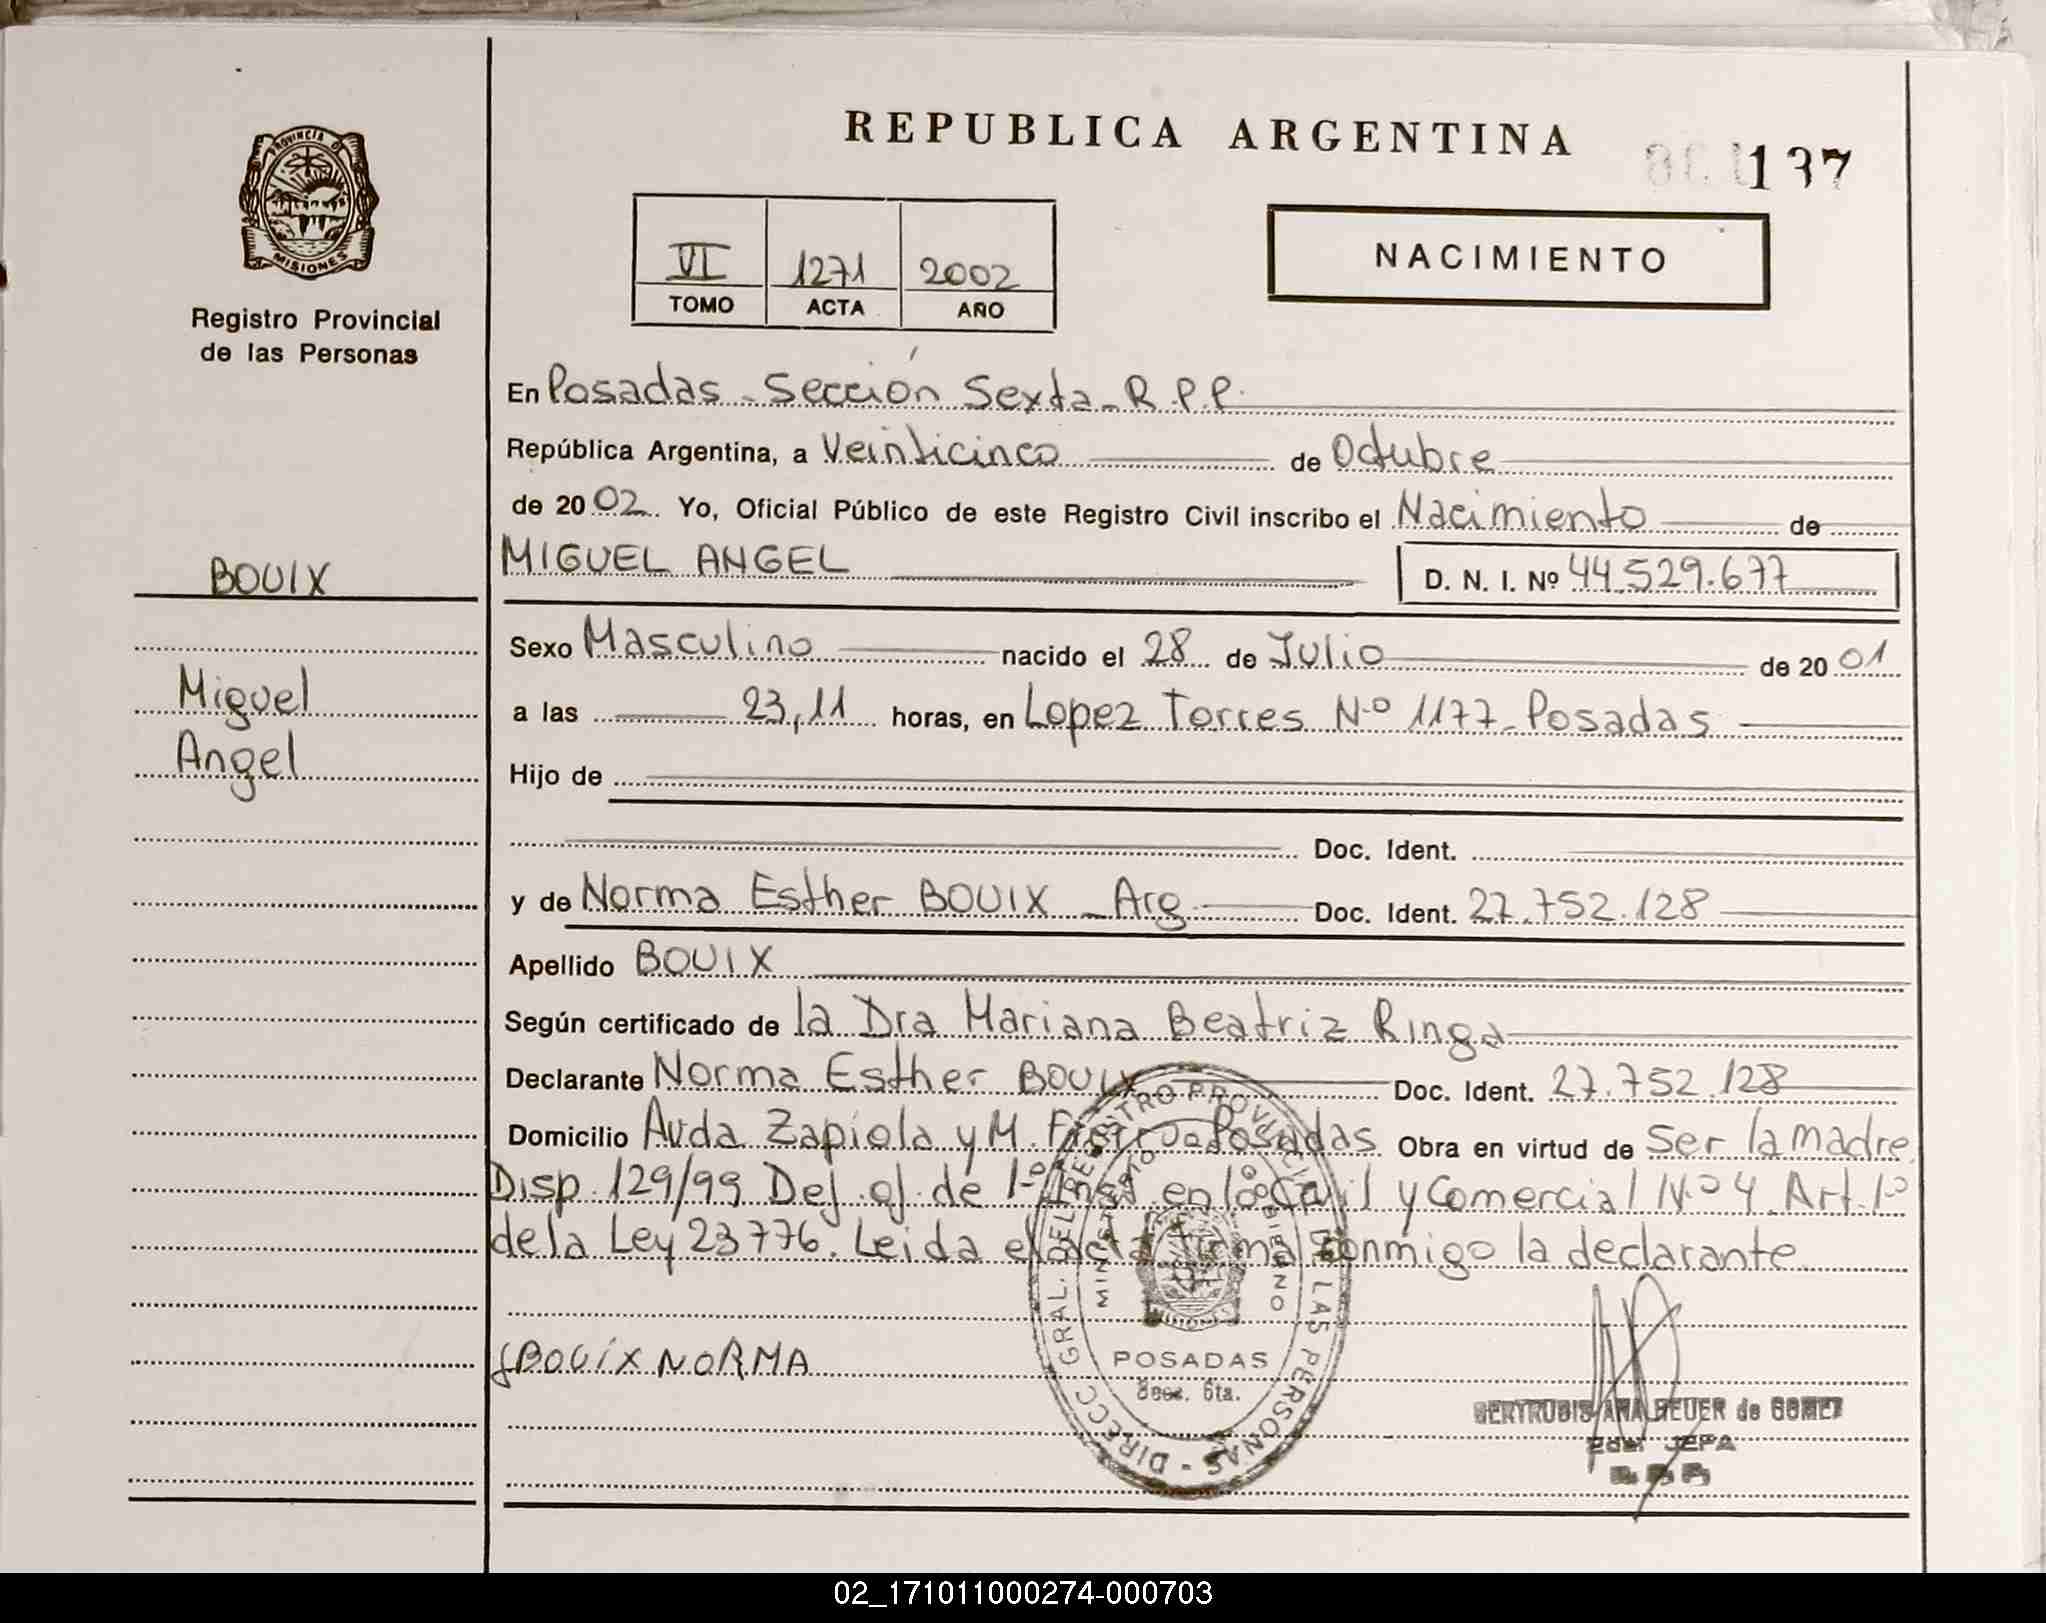 REPUBLICA ARGENTINA
137
PROVINCIA D MISIONES
Registro Provincial
de las Personas
VI 1271 2002
TOMO ACTA AÑO
NACIMIENTO
En Posadas - Sección Sexta - R.P.P.
República Argentina, a Veinticinco de Octubre
de 2002. Yo, Oficial Público de este Registro Civil inscribo el Nacimiento de
MIGUEL ANGEL D. N. I. Nº 44.529.677
BOUIX
Miguel
Angel
Sexo Masculino nacido el 28 de Julio de 2001
a las 23,11 horas, en Lopez Torres Nº 1177 - Posadas
Hijo de
Doc. Ident.
y de Norma Esther BOUIX - Arg Doc. Ident. 27.752.128
Apellido BOUIX
Según certificado de la Dra Mariana Beatriz Ringa
Declarante Norma Esther BOUIX Doc. Ident. 27.752.128
Domicilio Avda Zapiola y M. Fierro - Posadas Obra en virtud de Ser la madre
Disp. 129/99 Del de 1º Inst en lo Civil y Comercial Nº 4 Art. 1º
de la Ley 23776. Leida el acta firma conmigo la declarante
BOUIX NORMA
DIRECC GRAL. DEL REGISTRO PROVINCIAL DE LAS PERSONAS
MINISTERIO GOBIERNO
POSADAS
Secc. 6ta.
GERTRUDIS ANA REUER de GOMEZ
JEFA
02_171011000274-000703